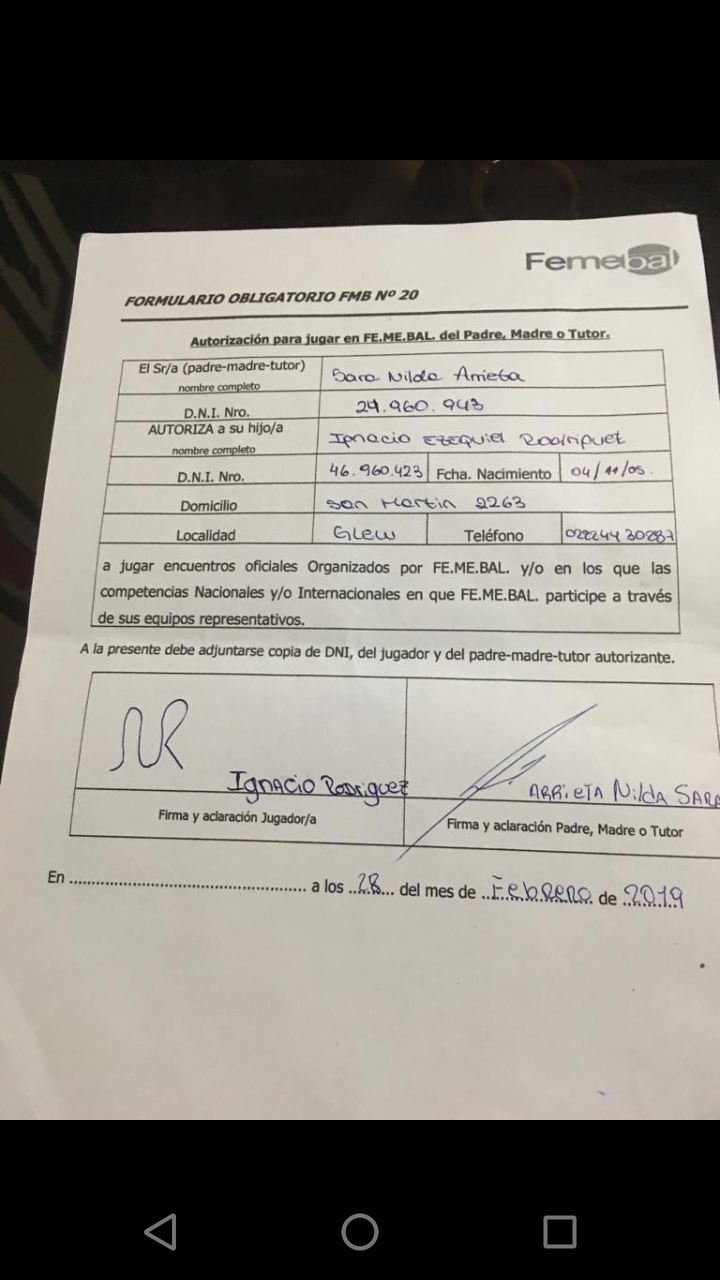 Femebal
FORMULARIO OBLIGATORIO FMB Nº 20
Autorización para jugar en FE.ME.BAL. del Padre, Madre o Tutor.
El Sr/a (padre-madre-tutor)
nombre completo
Sara Nilda Arrieta
D.N.I. Nro.
24.960.943
AUTORIZA a su hijo/a
nombre completo
Ignacio Ezequiel Rodriguez
D.N.I. Nro.
46.960.423
Fcha. Nacimiento
04/11/05.
Domicilio
San Martin 2263
Localidad
Glew
Teléfono
02224430287
a jugar encuentros oficiales Organizados por FE.ME.BAL. y/o en los que las
competencias Nacionales y/o Internacionales en que FE.ME.BAL. participe a través
de sus equipos representativos.
A la presente debe adjuntarse copia de DNI, del jugador y del padre-madre-tutor autorizante.
Ignacio Rodriguez
ARRIETA Nilda SARA
Firma y aclaración Jugador/a
Firma y aclaración Padre, Madre o Tutor
En ................................................ a los ..28... del mes de ..Febrero.. de ..2019